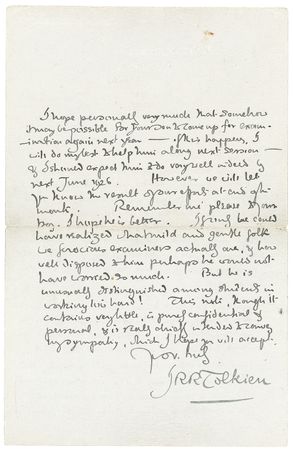 I hope personally very much that somehow
it may be possible for your son to come up for exam-
ination again next year — if this happens, I
will do my best to help him along next session —
& I should expect him to do very well indeed by
next June 1926. However we will let
you know the result of your efforts at end of
month. Remember me please to your
boy. I hope he is better. If only he could
have realized what mild and gentle folk
we ferocious examiners actually are, & how
well disposed to him perhaps he would not
have worried so much. But he is
unusually distinguished among students in
working too hard! This note, though it
contains very little, is purely confidential &
personal, & is really chiefly intended to convey
my sympathy, which I hope you will accept.
Yours truly
JRR Tolkien